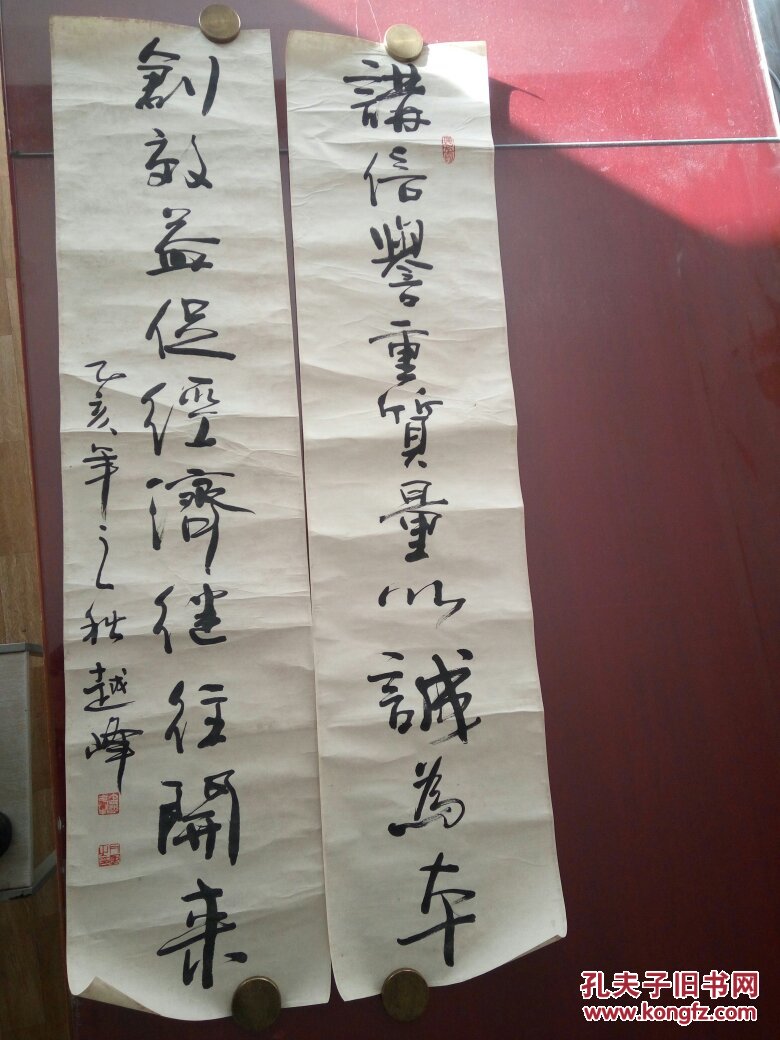 講信譽重質量以誠為本
創效益促經濟继往開来
乙亥年之秋越峰
孔夫子旧书网
www.kongfz.com